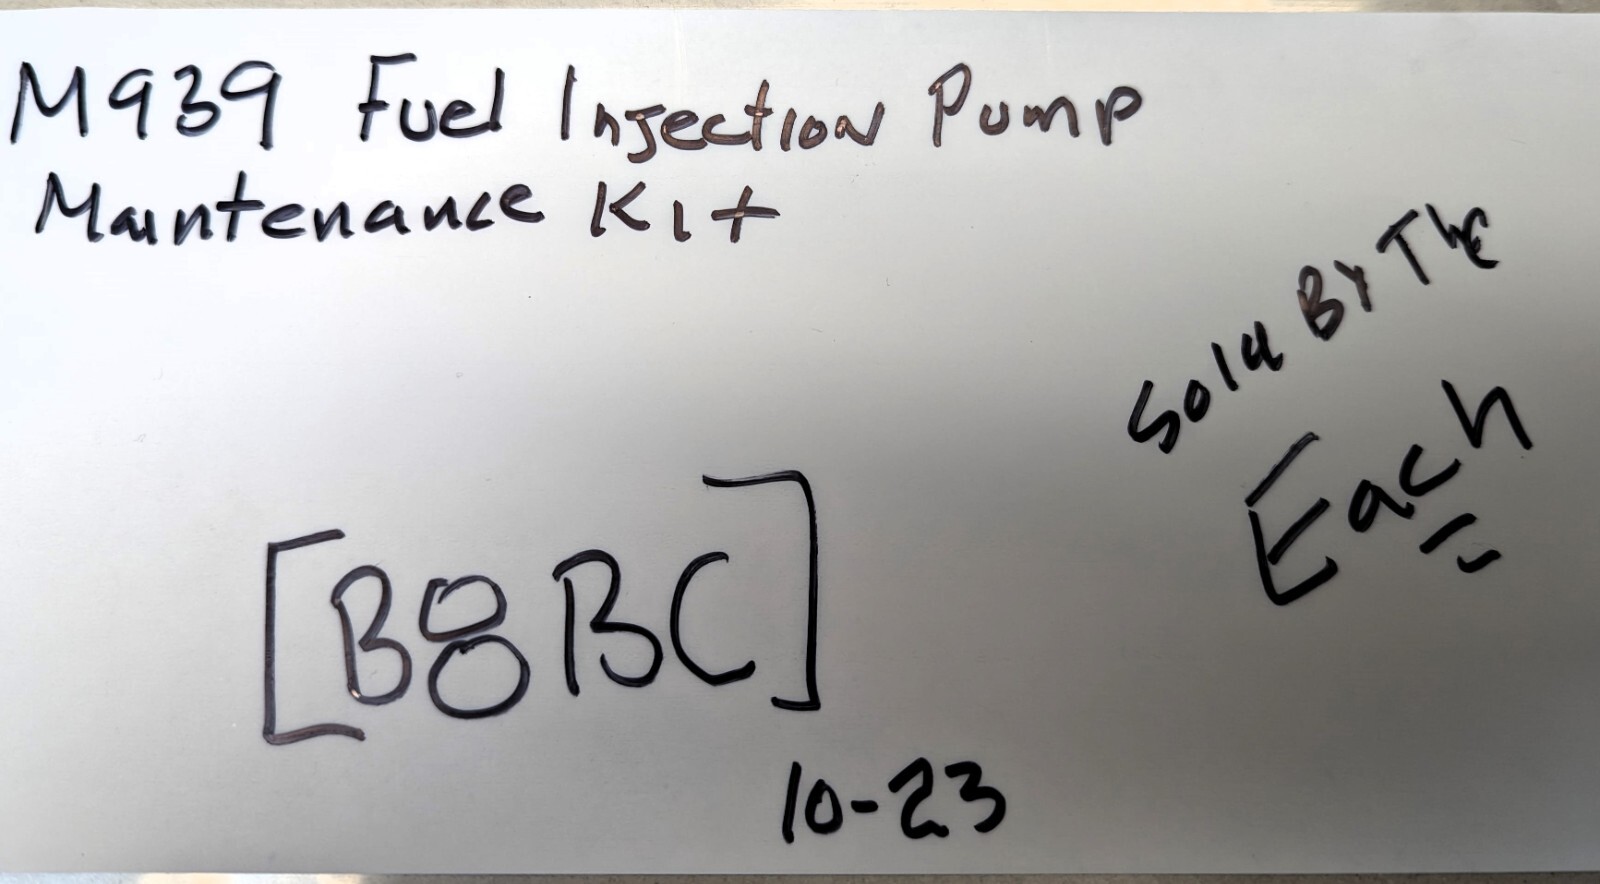 M939 Fuel Injection Pump
Maintenance Kit
Sold By The
Each
[B8BC]
10-23